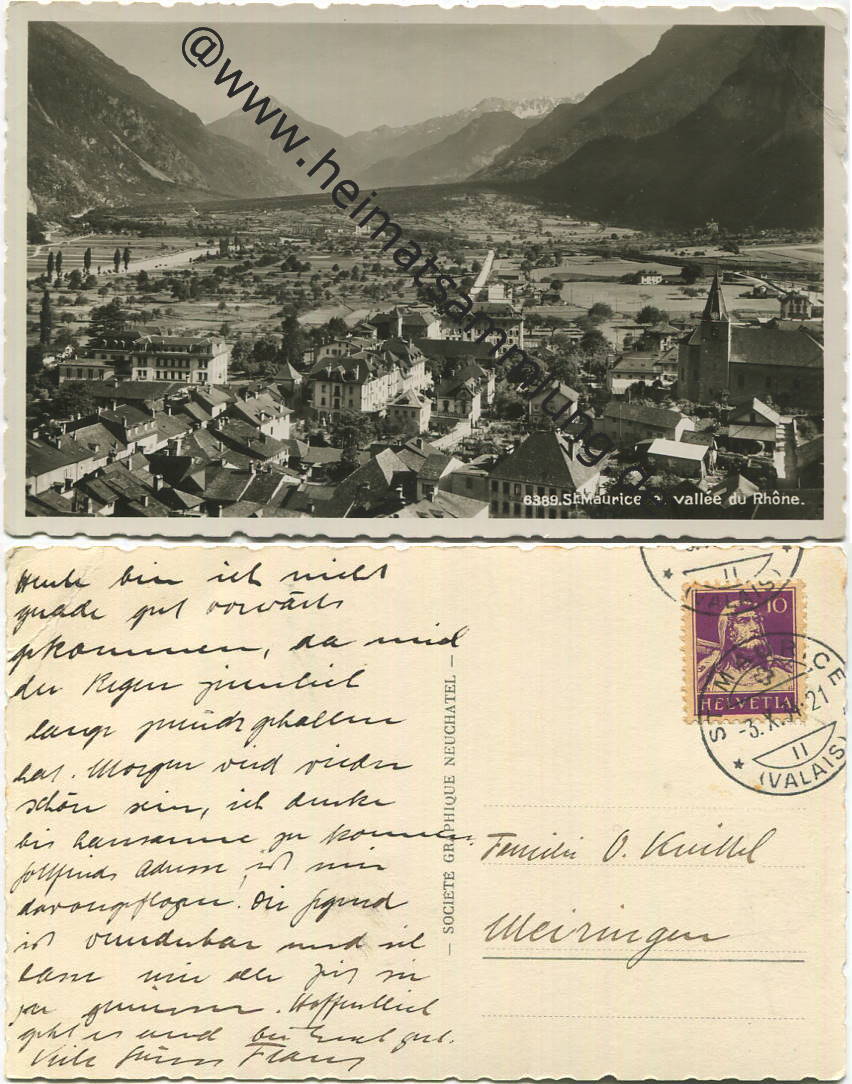 @www.heimatsammlung.de
6389. St. Maurice et vallée du Rhône.
Heute bin ich nicht
grade gut vorwärts
gekommen, da mich
der Regen ziemlich
lange zurückgehalten
hat. Morgen wird wieder
schön sein, ich denke
bis Lausanne zu kommen.
Adresse ist mir
davongeflogen. Die Gegend
ist wunderbar und ich
lasse mir die Zeit sie
zu geniessen. Hoffentlich
geht es und Euch gut.
Viele Grüsse Franz
— SOCIÉTÉ GRAPHIQUE NEUCHATEL —
10
HELVETIA
II
(VALAIS)
ST MAURICE
-3.X.
21
II
(VALAIS)
Familie O. Knittel
Meiringen